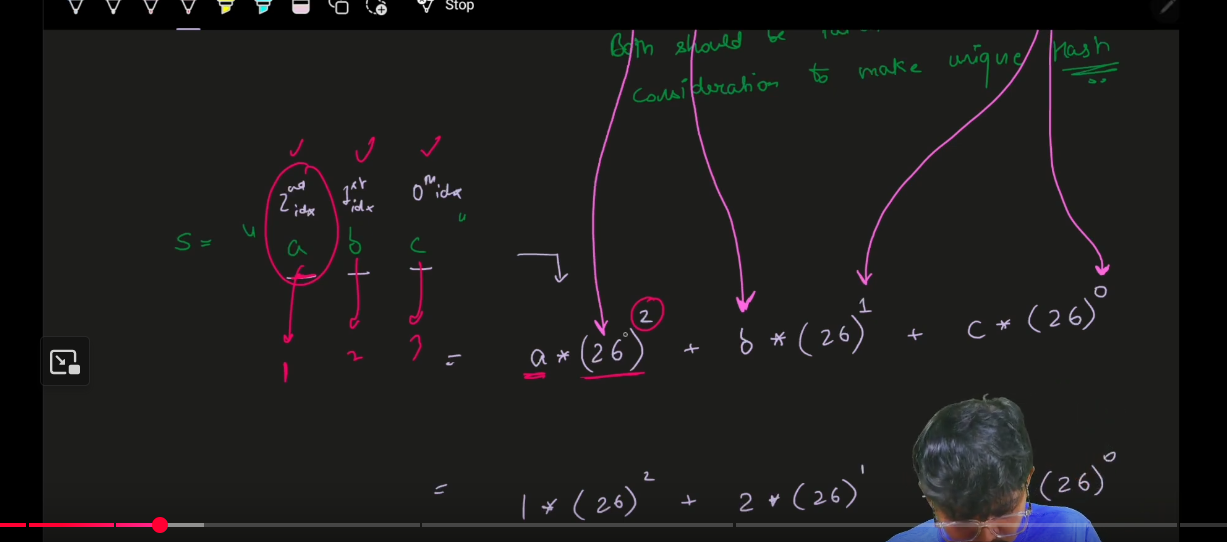 Stop
Both should be
consideration to make unique Hash
2nd idx 1st idx 0th idx
S = " a b c "
1 2 3
= a * (26)^2 + b * (26)^1 + c * (26)^0
= 1 * (26)^2 + 2 * (26)^1 (26)^0